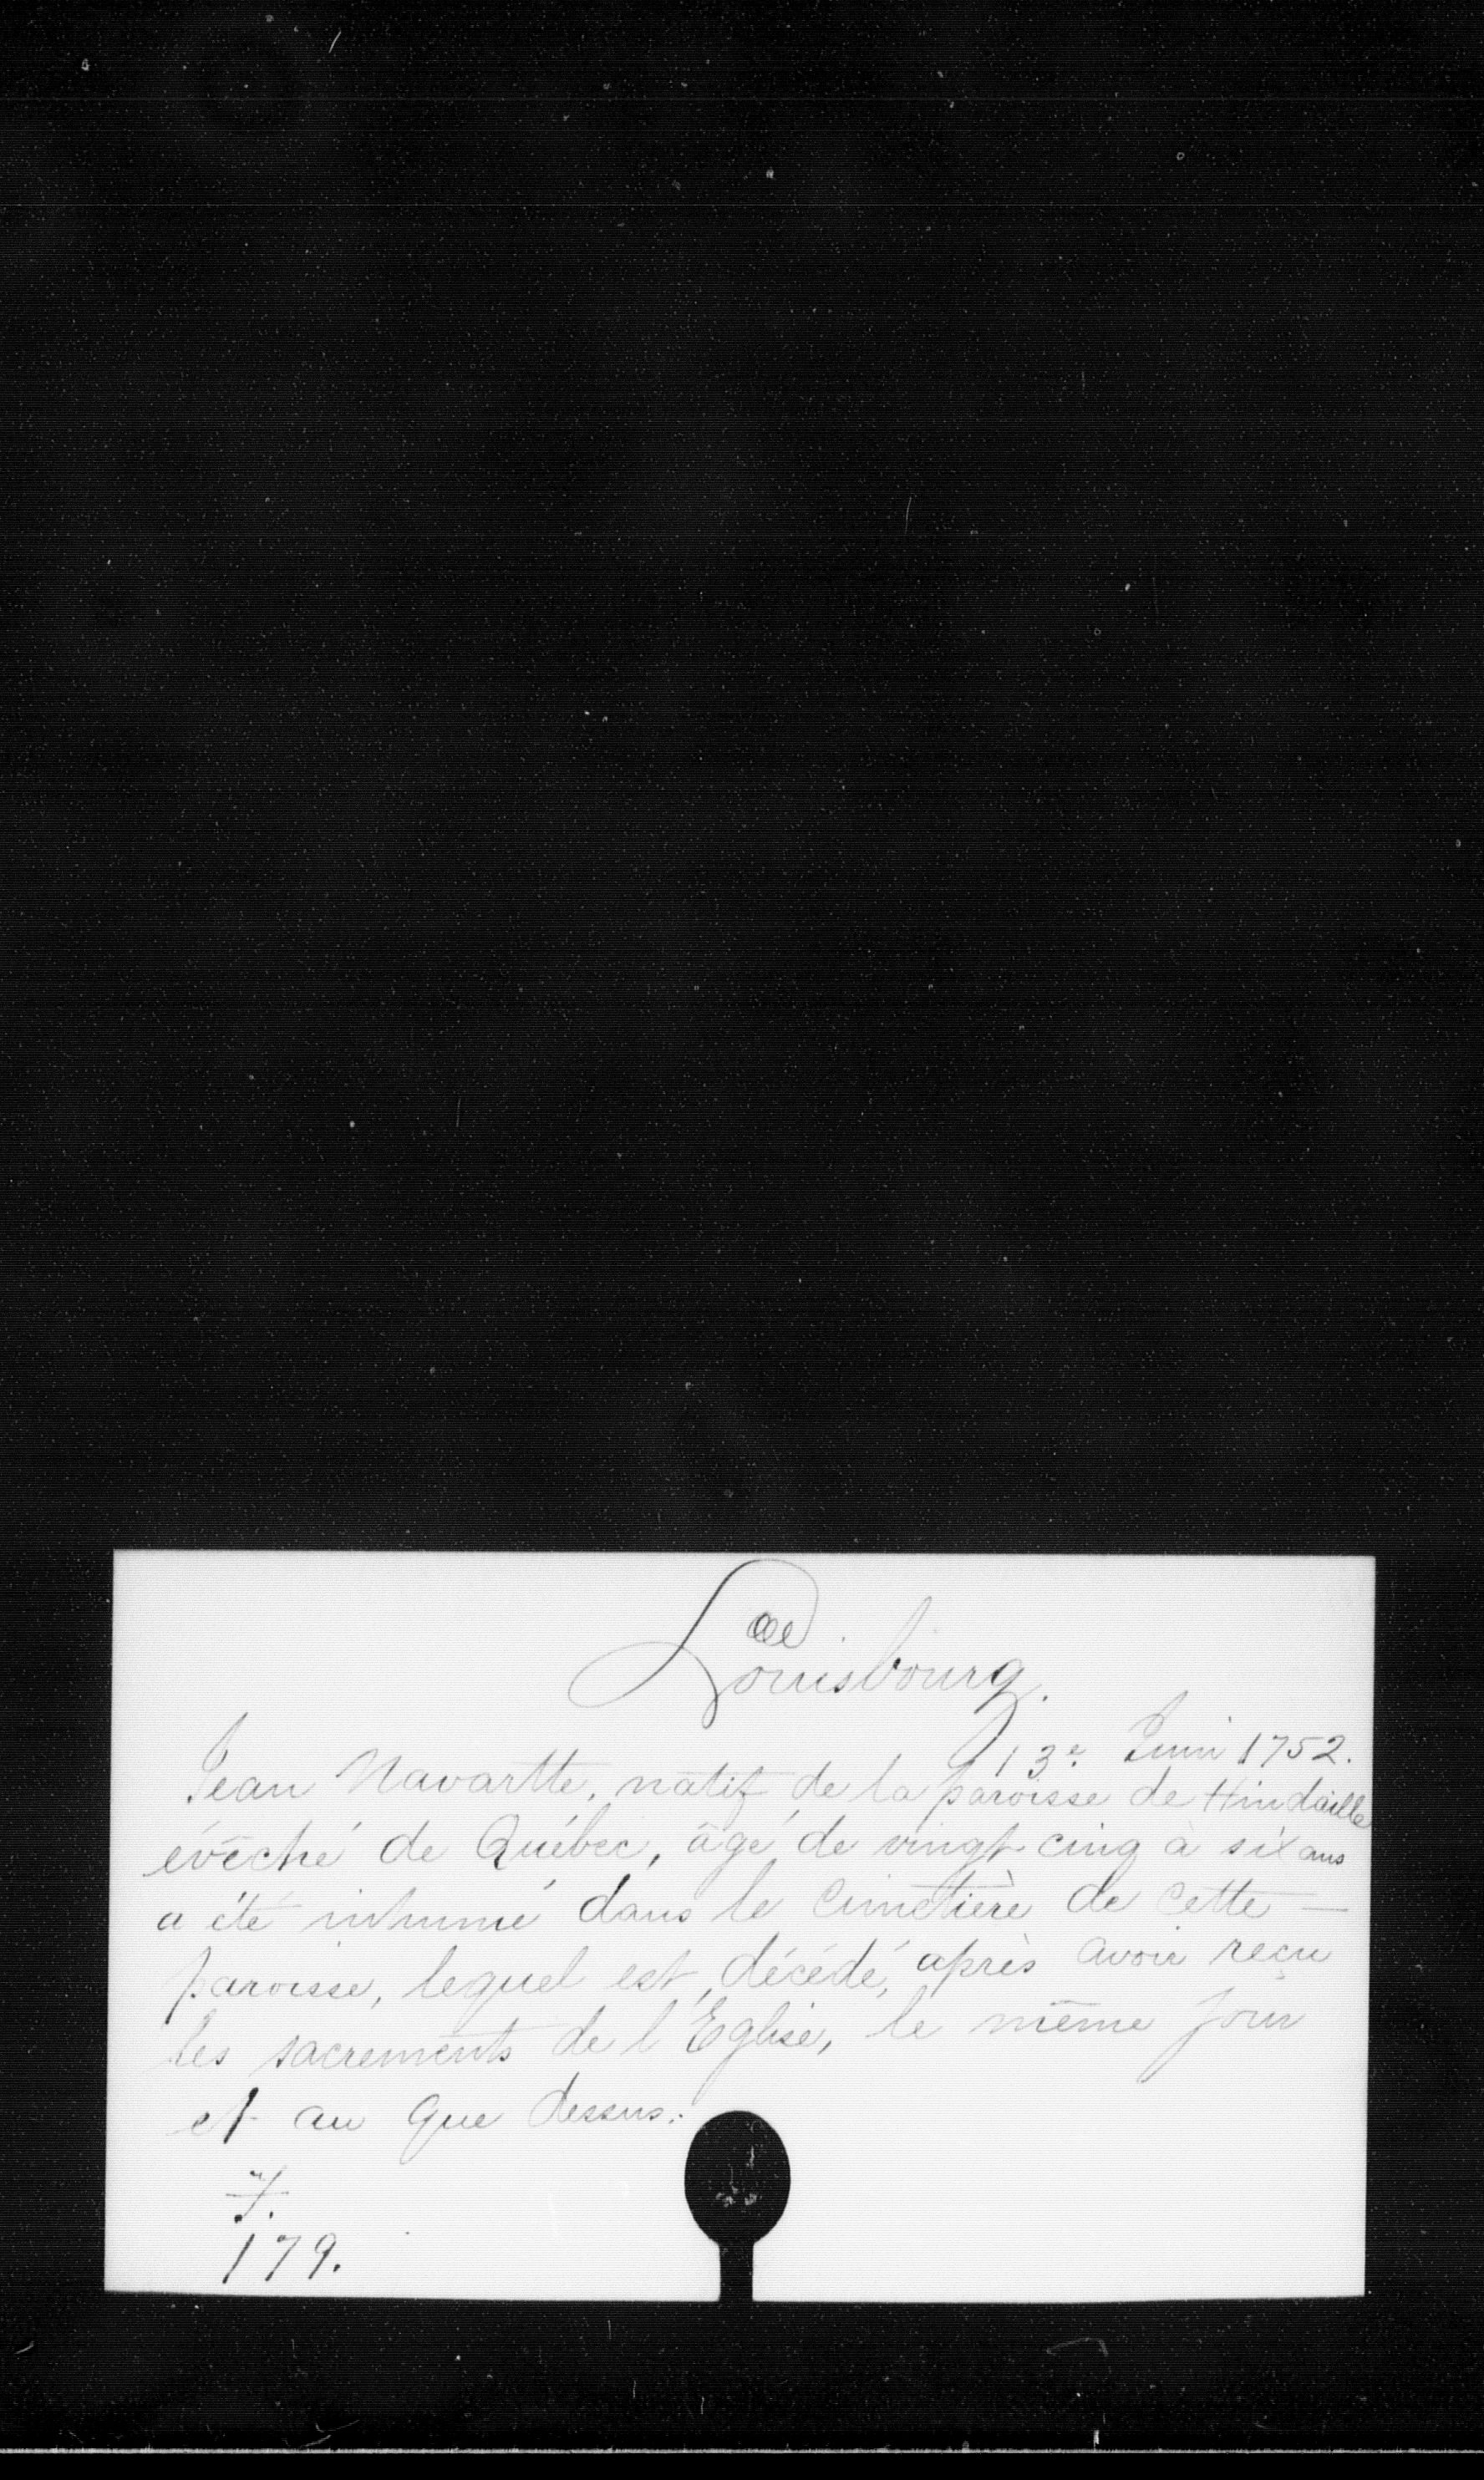 Louisbourg.
13e Juin 1752.
Jean Navartte, natif de la paroisse de Hindaille
évêché de Québec, âgé de vingt cinq à six ans
a été inhumé dans le cimetière de cette —
paroisse, lequel est décédé, après avoir reçu
les sacrements de l'Eglise, le même jour
et an que dessus.
7.
179.